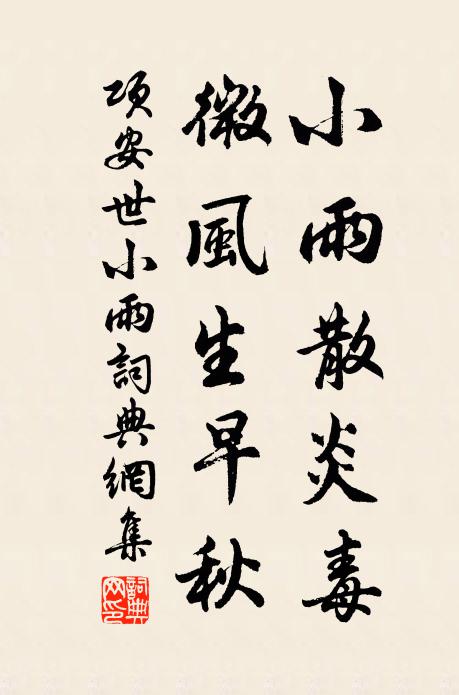 小雨散炎毒
微風生早秋
項安世小雨詞典網集
詞典
网印